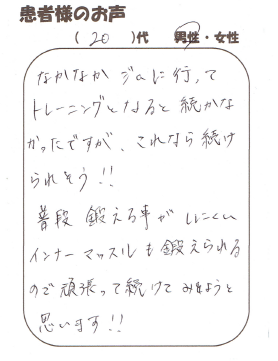 患者様のお声
( 20 )代 男性・女性
なかなか ジムに行って
トレーニングとなると続かな
かったですが、これなら続け
られそう!!
普段 鍛える事が しにくい
インナーマッスルも鍛えられる
ので頑張って続けてみようと
思います!!